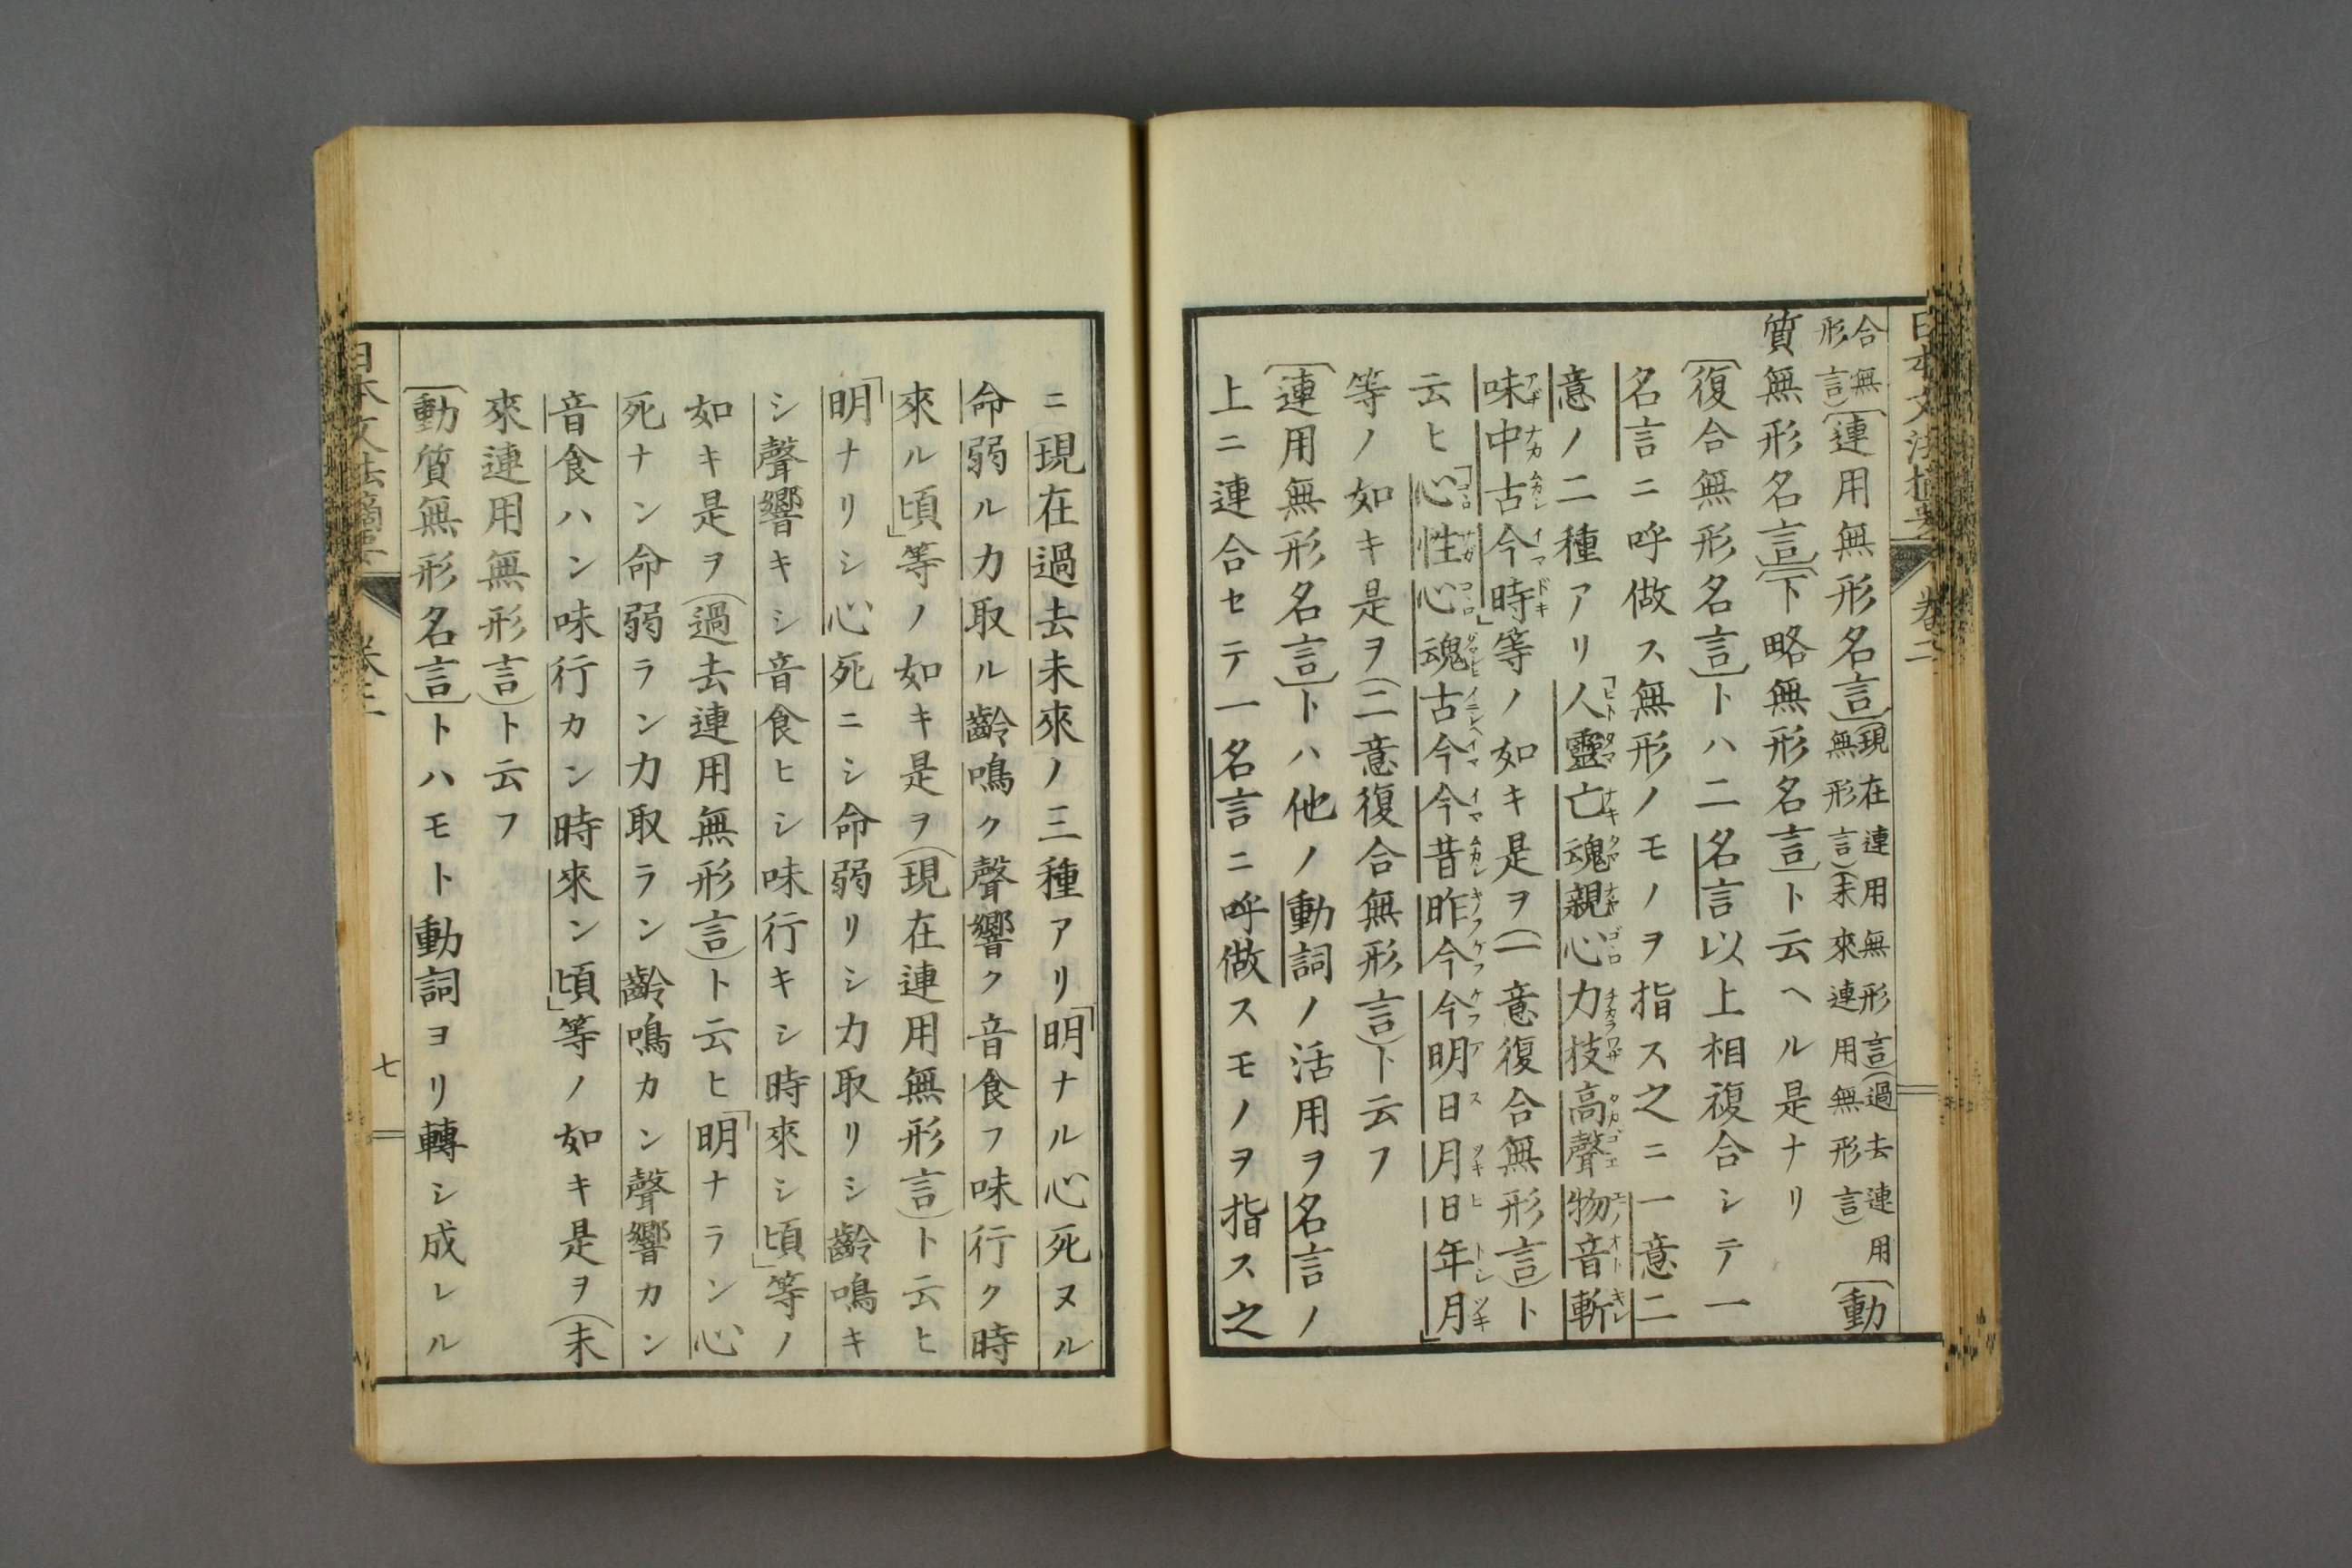 日本文法摘要 卷二
合無形言)〔連用無形名言〕(現在連用無形言)(過去連用無形言)(未來連用無形言)〔動
質無形名言〕〔下略無形名言〕ト云ヘル是ナリ
〔復合無形名言〕トハ二名言以上相複合シテ一
名言ニ呼做ス無形ノモノヲ指ス之ニ一意二
意ノ二種アリ「人靈亡魂親心力技高聲物音斬
味中古今時」等ノ如キ是ヲ(一意復合無形言)ト
云ヒ「心性心魂古今今昔昨今今明日月日年月」
等ノ如キ是ヲ(二意復合無形言)ト云フ
〔連用無形名言〕トハ他ノ動詞ノ活用ヲ名言ノ
上ニ連合セテ一名言ニ呼做スモノヲ指ス之
ニ現在過去未來ノ三種アリ「明ナル心死ヌル
命弱ル力取ル齡鳴ク聲響ク音食フ味行ク時
來ル頃」等ノ如キ是ヲ(現在連用無形言)ト云ヒ
「明ナリシ心死ニシ命弱リシ力取リシ齡鳴キ
シ聲響キシ音食ヒシ味行キシ時來シ頃」等ノ
如キ是ヲ(過去連用無形言)ト云ヒ「明ナラン心
死ナン命弱ラン力取ラン齡鳴カン聲響カン
音食ハン味行カン時來ン頃」等ノ如キ是ヲ(未
來連用無形言)ト云フ
〔動質無形名言〕トハモト動詞ヨリ轉シ成レル
日本文法摘要 卷二 七